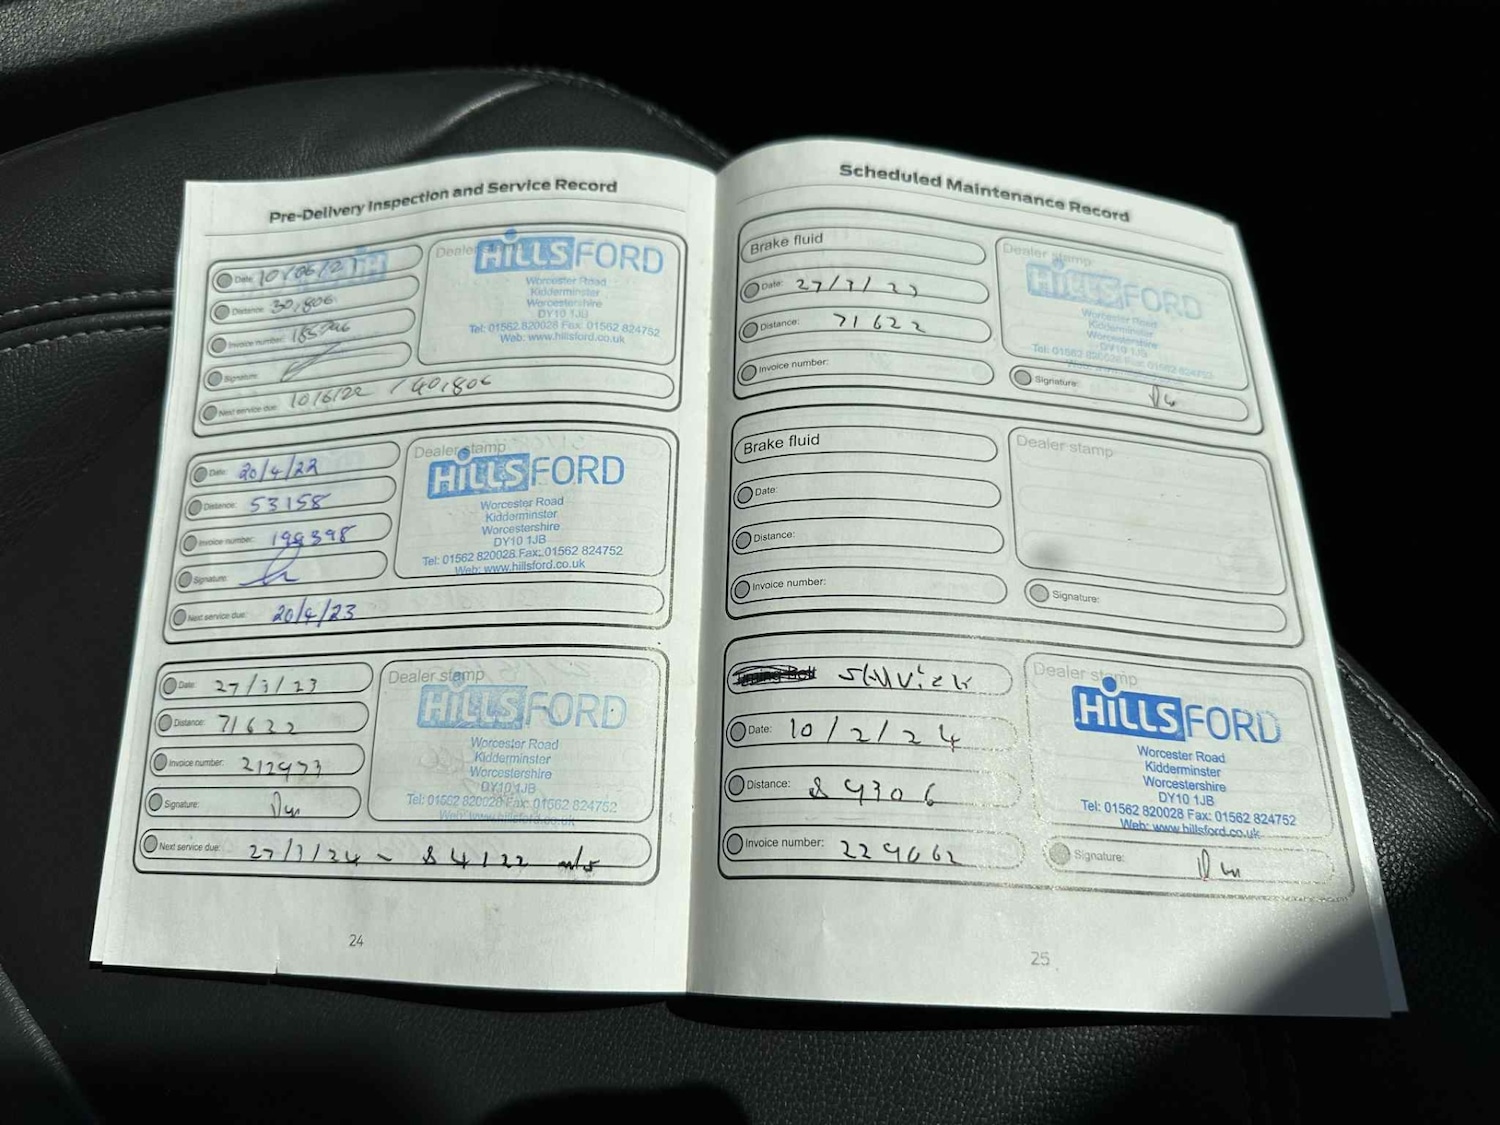 Pre-Delivery Inspection and Service Record
Date: 10/06/21
Distance: 30,806
Invoice number:
Signature:
Next service due: 10/6/22 / 40,806
Dealer
HILLS FORD
Worcester Road
Kidderminster
Worcestershire
DY10 1JB
Tel: 01562 820028 Fax: 01562 824752
Web: www.hillsford.co.uk
Date: 20/4/22
Distance: 53158
Invoice number: 199398
Signature:
Next service due: 20/4/23
Dealer stamp
HILLS FORD
Worcester Road
Kidderminster
Worcestershire
DY10 1JB
Tel: 01562 820028 Fax: 01562 824752
Web: www.hillsford.co.uk
Date: 27/3/23
Distance: 71622
Invoice number: 212973
Signature:
Next service due: 27/3/24 - 84122 mls
Dealer stamp
HILLS FORD
Worcester Road
Kidderminster
Worcestershire
DY10 1JB
Tel: 01562 820028 Fax: 01562 824752
Web: www.hillsford.co.uk
24
Scheduled Maintenance Record
Brake fluid
Date: 27/3/23
Distance: 71622
Invoice number:
Dealer stamp
HILLS FORD
Worcester Road
Kidderminster
Worcestershire
DY10 1JB
Tel: 01562 820028 Fax: 01562 824752
Web: www.hillsford.co.uk
Signature:
Brake fluid
Date:
Distance:
Invoice number:
Dealer stamp
Signature:
Service
Date: 10/2/24
Distance: 89306
Invoice number: 229662
Dealer stamp
HILLS FORD
Worcester Road
Kidderminster
Worcestershire
DY10 1JB
Tel: 01562 820028 Fax: 01562 824752
Web: www.hillsford.co.uk
Signature:
25